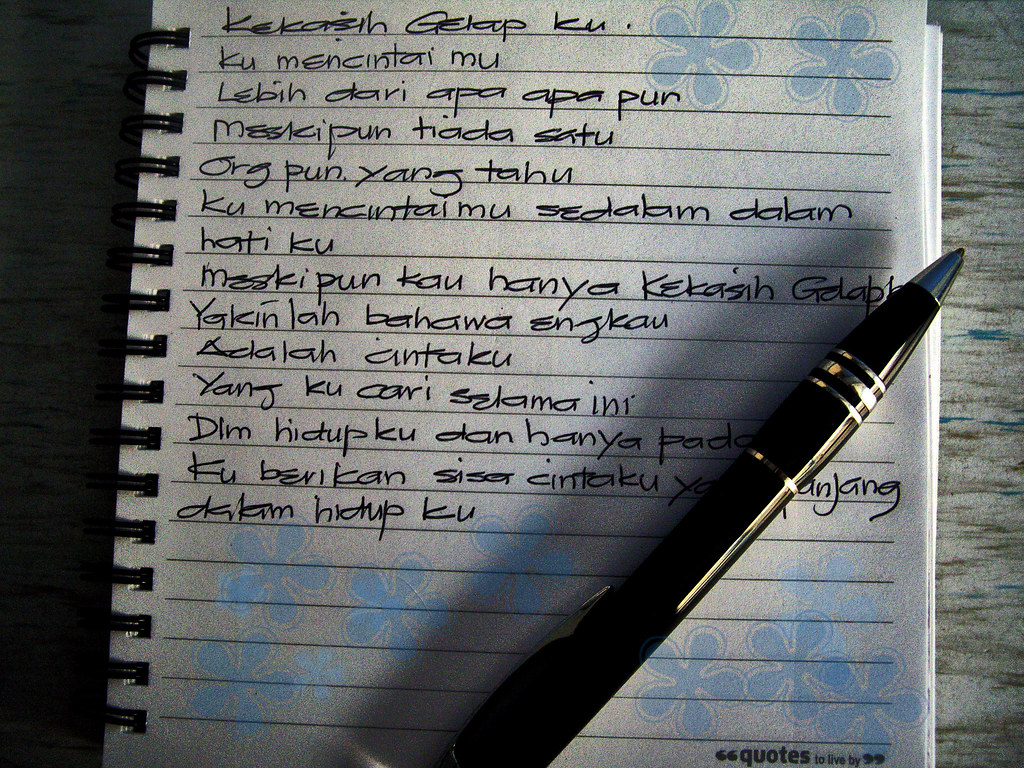 Kekasih Gelap ku.
Ku mencintai mu
Lebih dari apa apa pun
Meskipun tiada satu
Org pun. yang tahu
Ku mencintai mu sedalam dalam
hati ku
Meskipun kau hanya Kekasih Gelap
Yakin lah bahawa engkau
Adalah cintaku
Yang ku cari selama ini
Dlm hidupku dan hanya pada
Ku berikan sisa cintaku
dalam hidup ku
“quotes to live by”